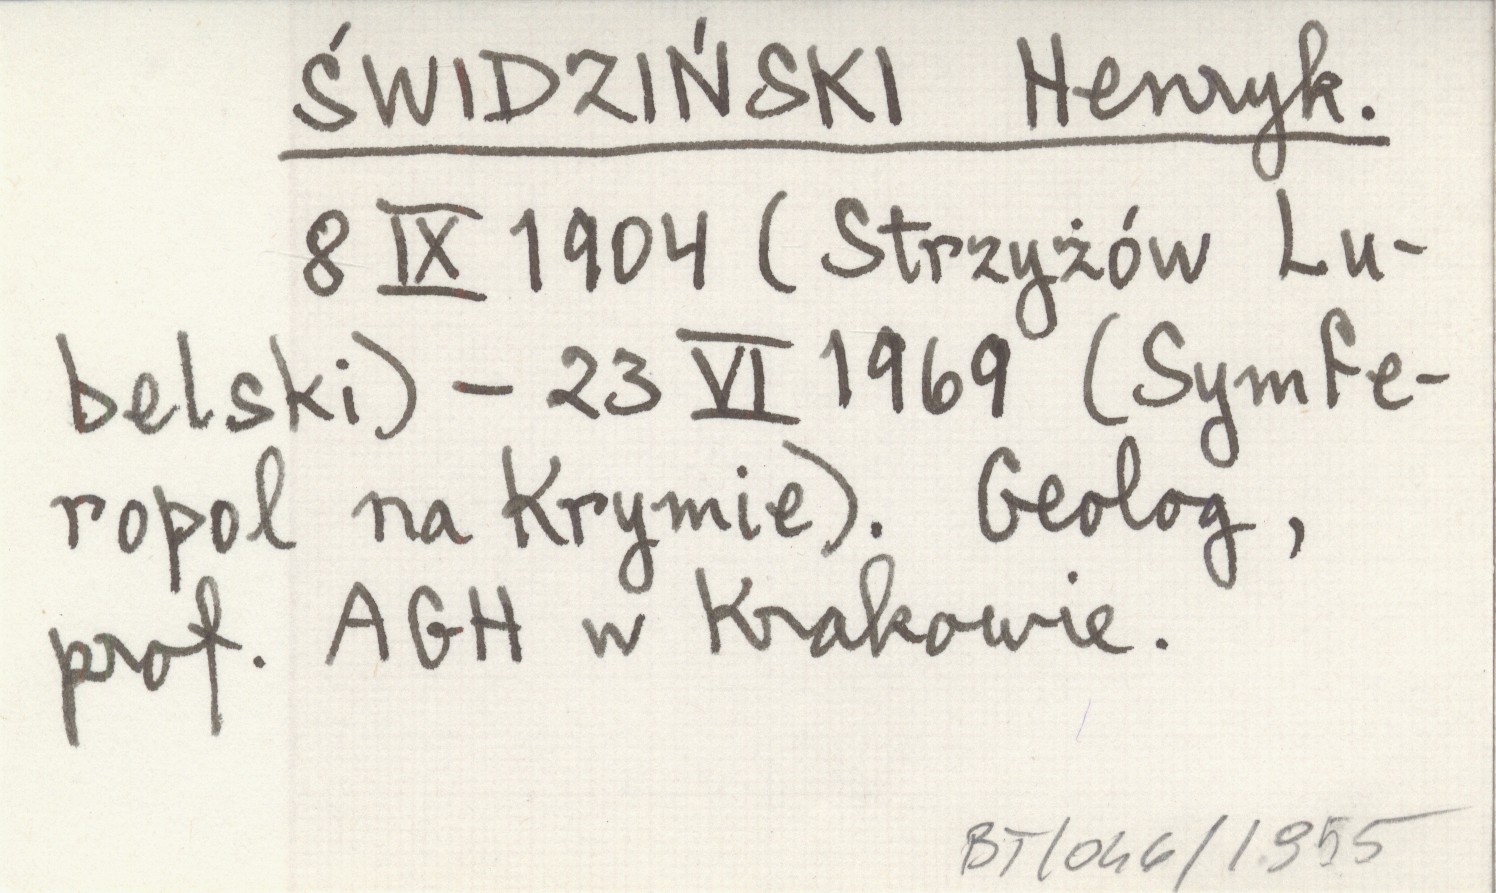 ŚWIDZIŃSKI Henryk.
8 IX 1904 (Strzyżów Lu-
belski) - 23 VI 1969 (Symfe-
ropol na Krymie). Geolog,
prof. AGH w Krakowie.
BT/046/1955